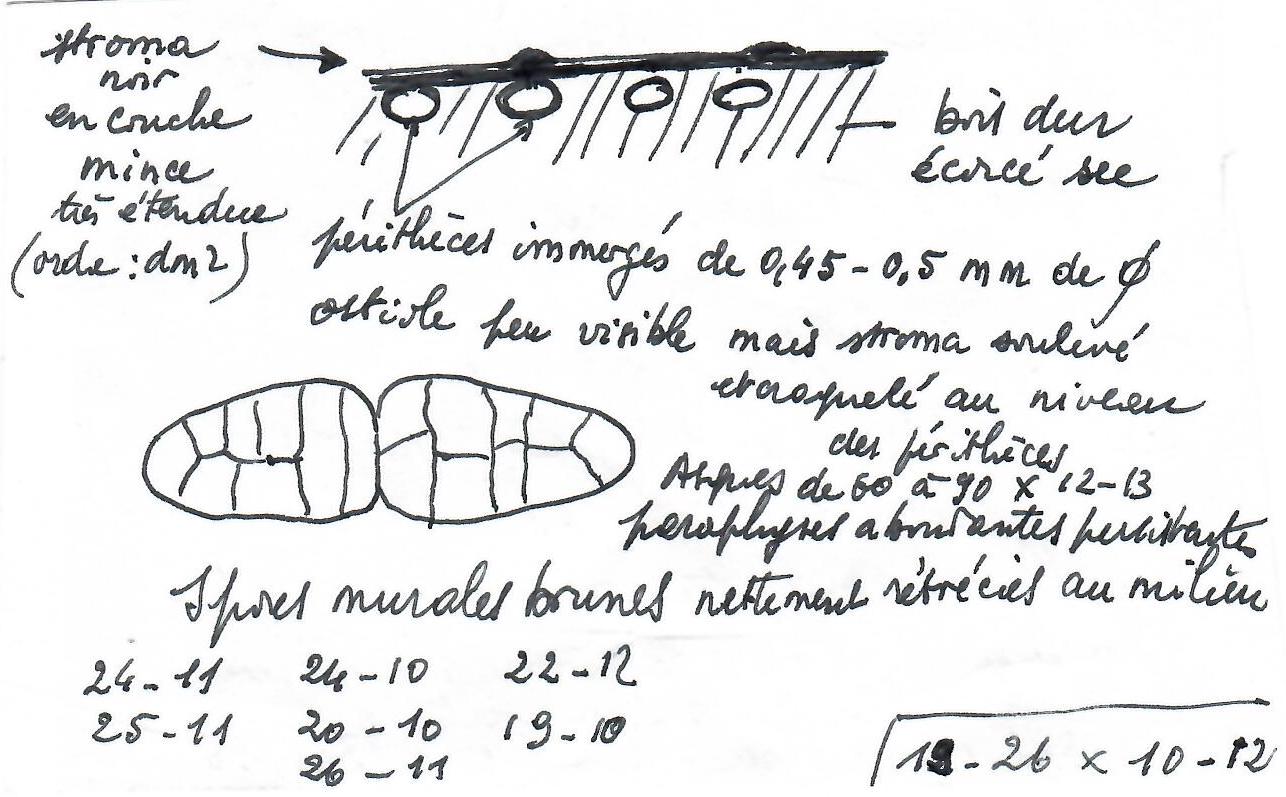 stroma
noir
en couche
mince
très étendue
(ordre : dm2)
bois dur
écorcé sec
périthèces immergés de 0,45-0,5 mm de ϕ
ostiole peu visible mais stroma soulevé
et craquelé au niveau
des périthèces
Asques de 60 à 90 x 12-13
paraphyses abondantes persistantes
Spores murales brunes nettement rétrécies au milieu
24-11 24-10 22-12
25-11 20-10 19-10
26-11
19-26 x 10-12